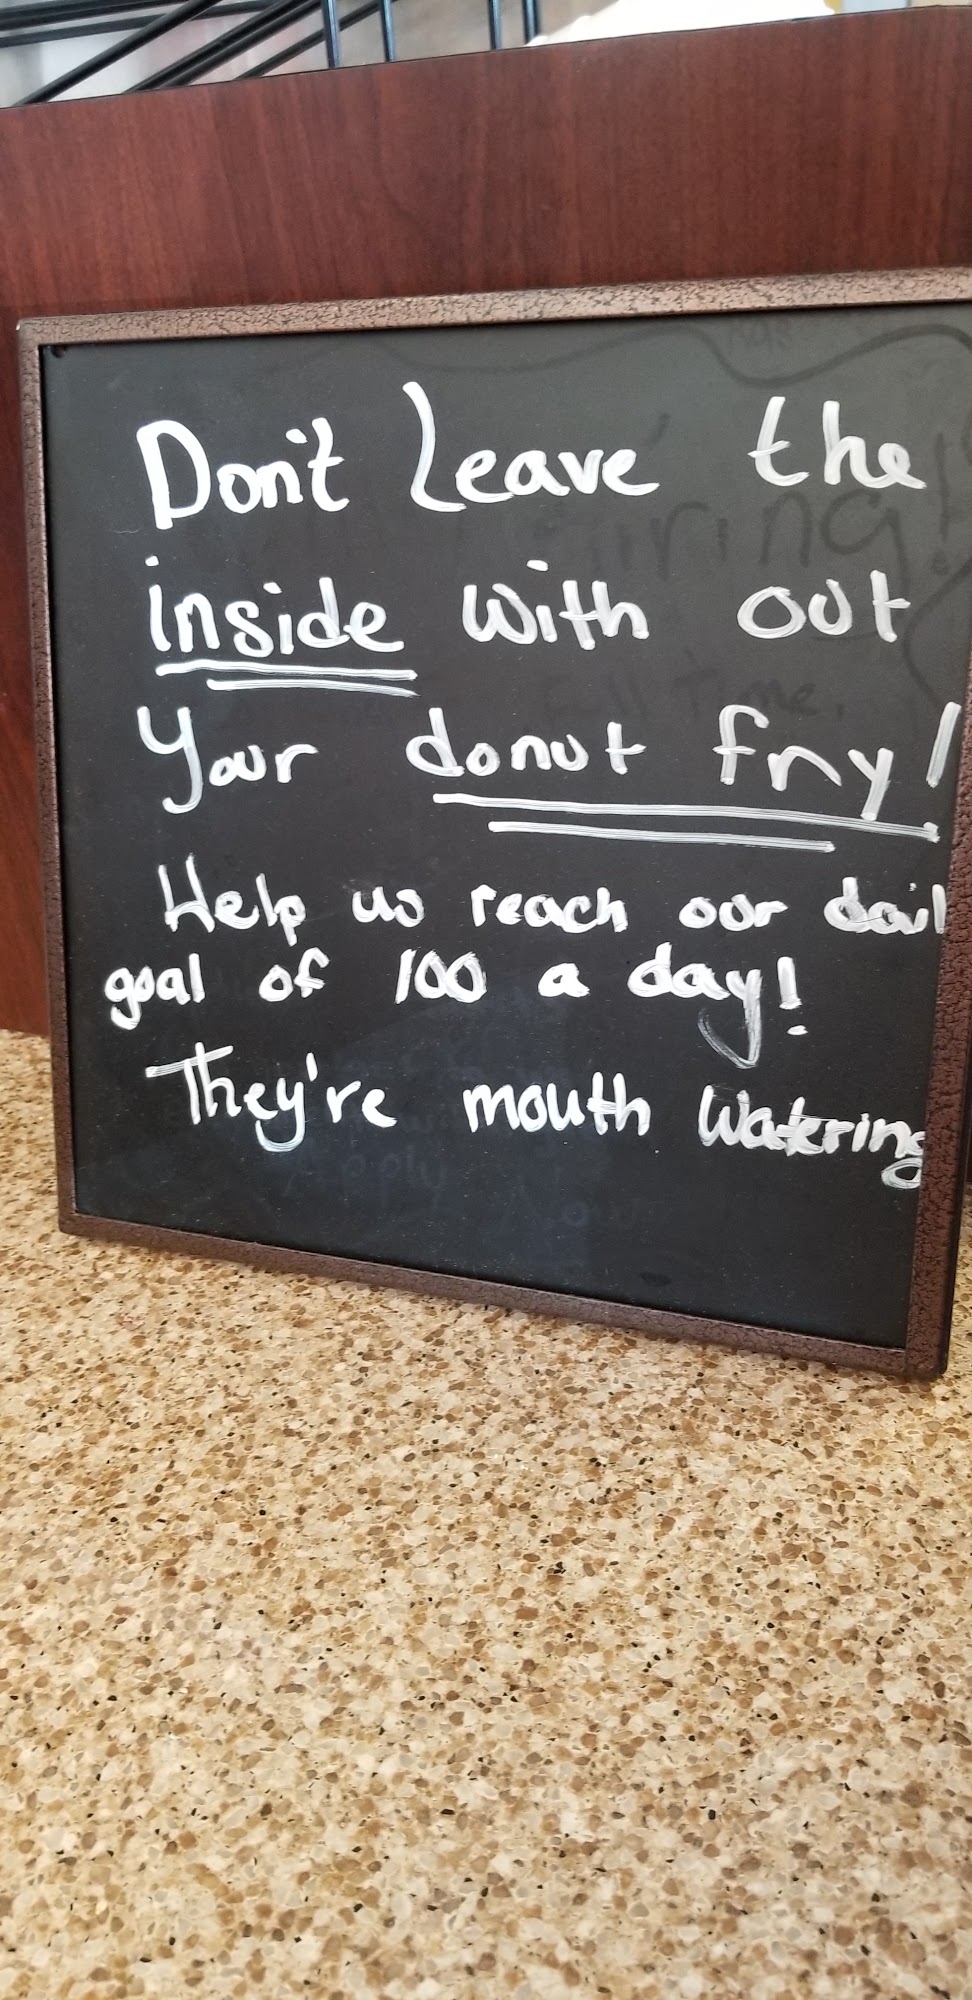 Don't Leave the
inside with out
Your donut fry!
Help us reach our dail
goal of 100 a day!
They're mouth watering
iring!
Full Time.
Apply